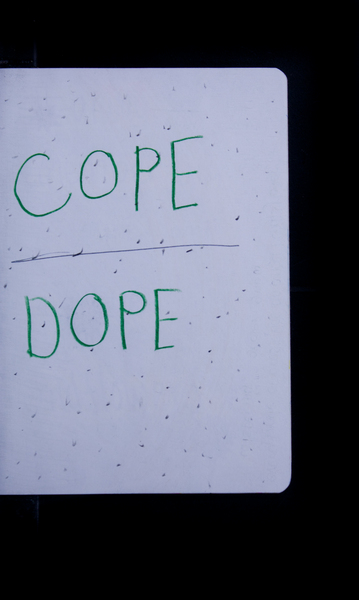 COPE
DOPE